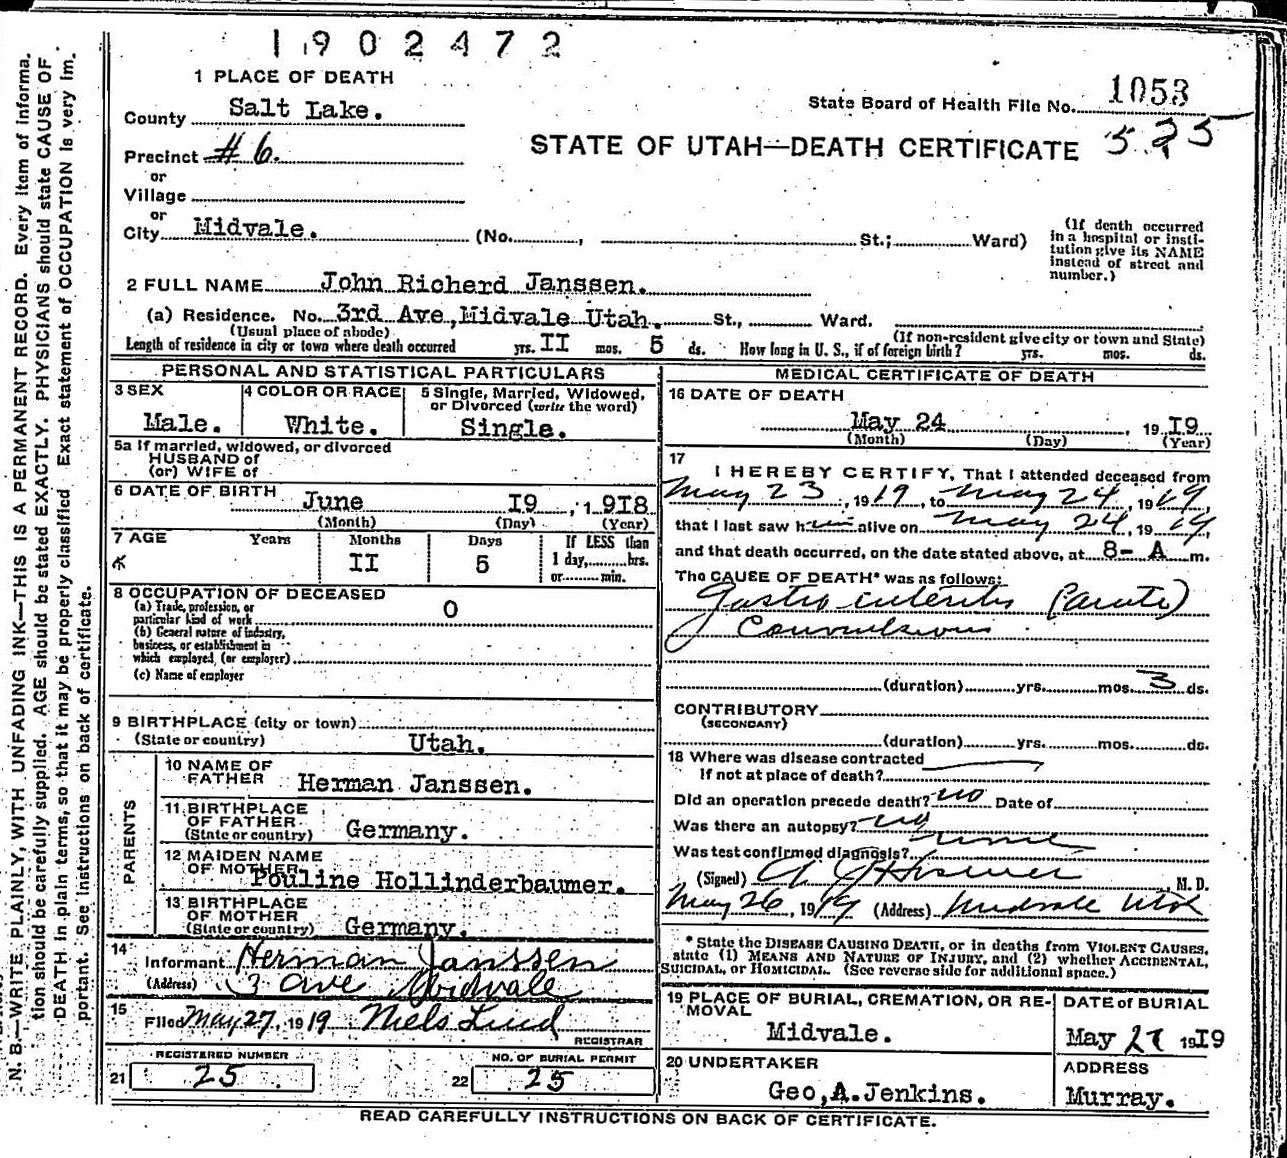 1902472
1 PLACE OF DEATH
County Salt Lake.
State Board of Health File No. 1053
Precinct # 6.
STATE OF UTAH—DEATH CERTIFICATE 525
or
Village
or
City Midvale. (No. , St.; Ward)
(If death occurred
in a hospital or insti-
tution give its NAME
instead of street and
number.)
2 FULL NAME John Richerd Janssen.
(a) Residence. No. 3rd Ave,Midvale Utah. St., Ward.
(Usual place of abode) (If non-resident give city or town and State)
Length of residence in city or town where death occurred yrs. II mos. 5 ds. How long in U. S., if of foreign birth? yrs. mos. ds.
PERSONAL AND STATISTICAL PARTICULARS
3 SEX
Male.
4 COLOR OR RACE
White.
5 Single, Married, Widowed,
or Divorced (write the word)
Single.
5a If married, widowed, or divorced
HUSBAND of
(or) WIFE of
6 DATE OF BIRTH June I9 , 19I8
(Month) (Day) (Year)
7 AGE Years Months Days If LESS than
II 5 1 day, hrs.
or min.
8 OCCUPATION OF DECEASED
(a) Trade, profession, or
particular kind of work O
(b) General nature of industry,
business, or establishment in
which employed (or employer)
(c) Name of employer
9 BIRTHPLACE (city or town)
(State or country) Utah.
PARENTS
10 NAME OF
FATHER Herman Janssen.
11 BIRTHPLACE
OF FATHER
(State or country) Germany.
12 MAIDEN NAME
OF MOTHER
Pouline Hollinderbaumer.
13 BIRTHPLACE
OF MOTHER
(State or country) Germany.
14
Informant Herman Janssen
(Address) 3 Ave Midvale
15
Filed May 27, 1919 Niels Lind
REGISTRAR
REGISTERED NUMBER
21 25
NO. OF BURIAL PERMIT
22 25
MEDICAL CERTIFICATE OF DEATH
16 DATE OF DEATH
May 24 , 19 I9
(Month) (Day) (Year)
17
I HEREBY CERTIFY, That I attended deceased from
May 23, 1919, to May 24, 1919,
that I last saw him alive on May 24, 1919,
and that death occurred, on the date stated above, at 8- A m.
The CAUSE OF DEATH* was as follows:
Gastro enteritis (acute)
Convulsions
(duration) yrs. mos. 3 ds.
CONTRIBUTORY
(SECONDARY)
(duration) yrs. mos. ds.
18 Where was disease contracted
If not at place of death?
Did an operation precede death? no Date of
Was there an autopsy? no
Was test confirmed diagnosis? none
(Signed) M. D.
May 26, 1919 (Address) Midvale Utah
* State the DISEASE CAUSING DEATH, or in deaths from VIOLENT CAUSES,
state (1) MEANS AND NATURE OF INJURY, and (2) whether ACCIDENTAL,
SUICIDAL, or HOMICIDAL. (See reverse side for additional space.)
19 PLACE OF BURIAL, CREMATION, OR RE-
MOVAL
Midvale.
DATE of BURIAL
May 27 19I9
20 UNDERTAKER
Geo,A.Jenkins.
ADDRESS
Murray.
READ CAREFULLY INSTRUCTIONS ON BACK OF CERTIFICATE.
N. B.—WRITE PLAINLY, WITH UNFADING INK—THIS IS A PERMANENT RECORD. Every item of informa-
tion should be carefully supplied. AGE should be stated EXACTLY. PHYSICIANS should state CAUSE OF
DEATH in plain terms, so that it may be properly classified. Exact statement of OCCUPATION is very im-
portant. See instructions on back of certificate.